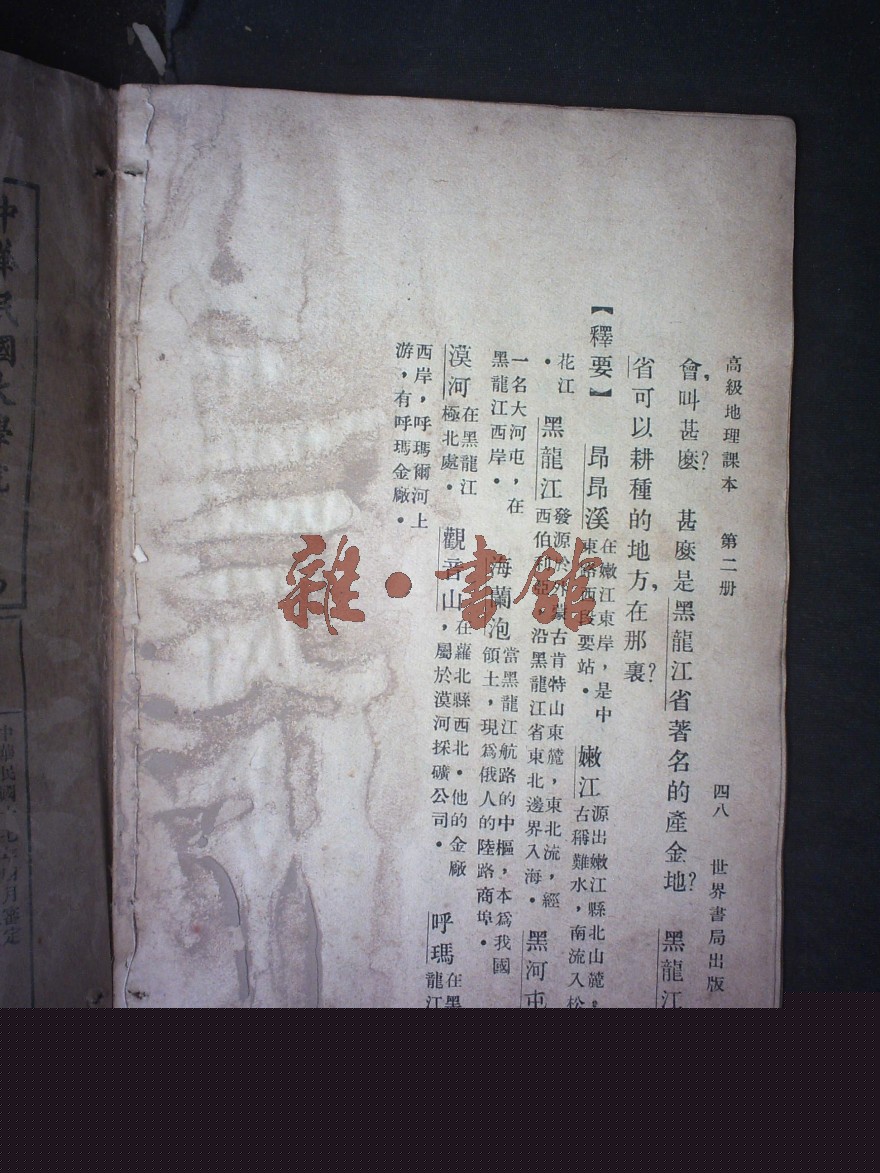 高級地理課本 第二册 四八 世界書局出版
會,叫甚麼? 甚麼是黑龍江省著名的產金地? 黑龍江
省可以耕種的地方,在那裏?
【釋要】 昂昂溪 在嫩江東岸,是中東路西段要站。 嫩江 源出嫩江縣北山麓。古稱難水,南流入松
花江。 黑龍江 發源於外蒙古肯特山東麓,東北流,經西伯利亞,沿黑龍江省東北邊界入海。 黑河屯
一名大河屯,在黑龍江西岸。 海蘭泡 當黑龍江航路的中樞,本爲我國領土,現爲俄人的陸路商埠。
漠河 在黑龍江極北處。 觀音山 在蘿北縣西北。他的金廠,屬於漠河採礦公司。 呼瑪 在黑龍江
西岸,呼瑪爾河上游,有呼瑪金廠。
中華民國大學院
中華民國
月審定
雜·書館